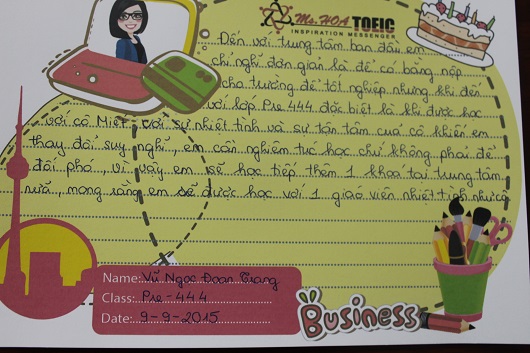 Ms. HOA TOEIC
INSPIRATION MESSENGER
Đến với trung tâm ban đầu em
chỉ nghĩ đơn giản là để có bằng nộp
cho trường để tốt nghiệp nhưng khi đến
với lớp Pre 444 đặc biệt là khi được học
với cô Miet, với sự nhiệt tình và sự tận tâm của cô khiến em
thay đổi suy nghĩ, em cần nghiêm túc học chứ không phải để
đối phó, vì vậy em sẽ học tiếp thêm 1 khoá tại trung tâm
nữa, mong rằng em sẽ được học với 1 giáo viên nhiệt tình như cô
Name: Vũ Ngọc Đoan Trang
Class: Pre - 444
Date: 9-9-2015
Business